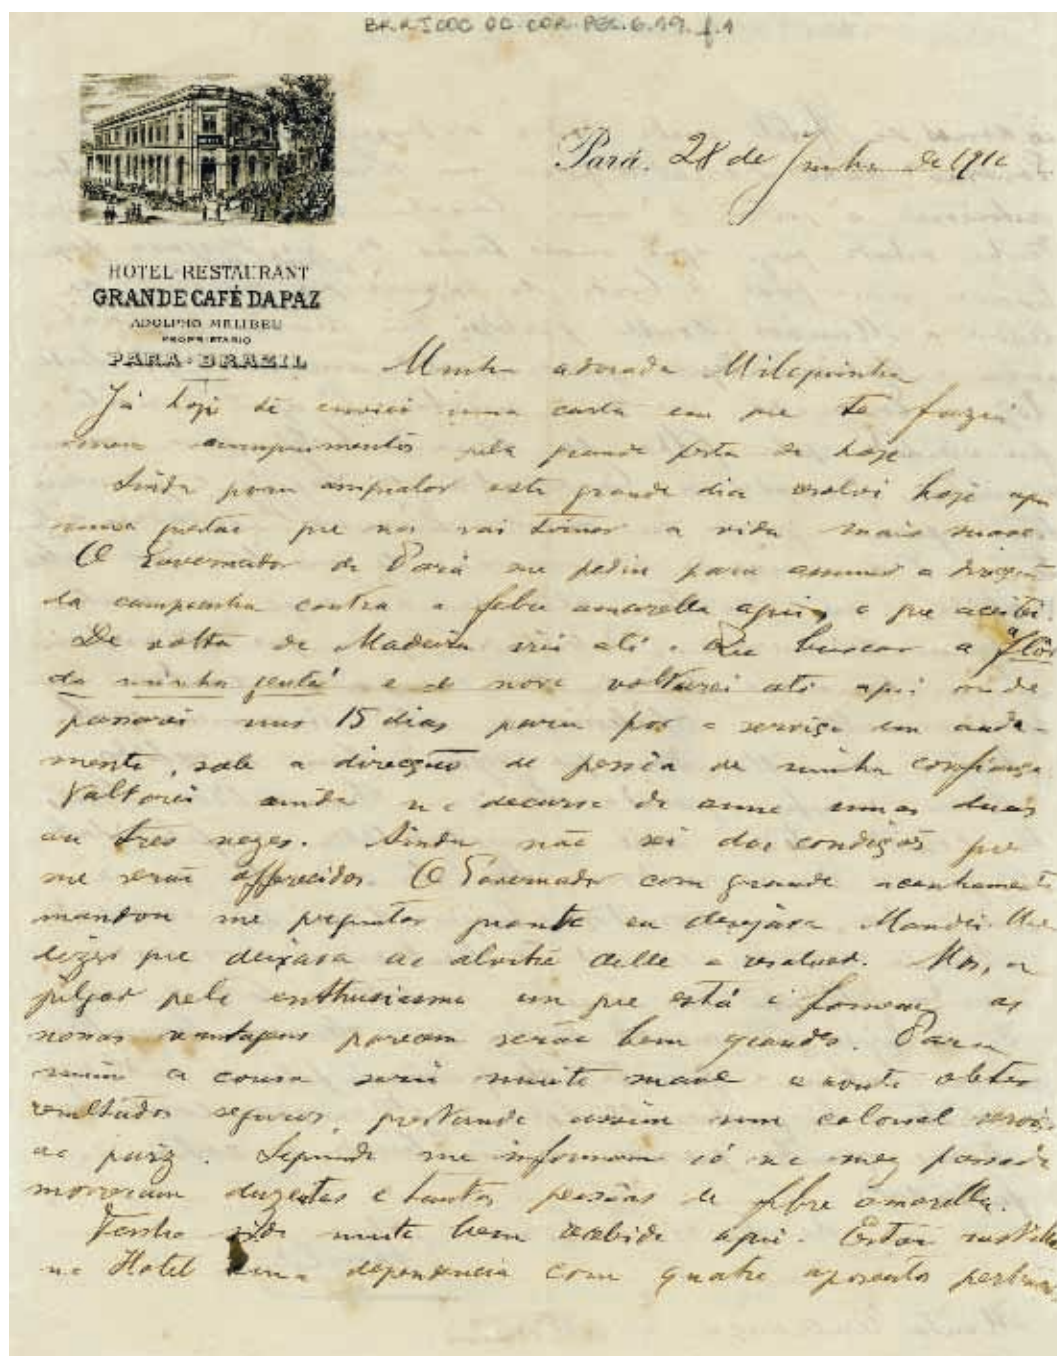 BR.RJCOC OC-COR-PES.6.19.f.1
Pará, 28 de Junho de 1910
HOTEL-RESTAURANT
GRANDE CAFÉ DA PAZ
ADOLPHO MELIBEU
PROPRIETARIO
PARA-BRAZIL
Minha adorada Miloquinha
Já hoje te enviei uma carta em que te fazia
meus cumprimentos pela grande festa de hoje
Ainda para este grande dia resolvi hoje aqui
que nos vai tornar a vida mais suave.
O Governador do Pará me pediu para assumir a direcção
da campanha contra a febre amarella aqui, o que aceitei.
De volta do Madeira irei até o Rio buscar a "flôr
da minha gente" e de novo voltarei até aqui onde
passarei uns 15 dias para por o serviço em anda-
mento, sob a direcção de pessôa de minha confiança
Voltarei ainda no decurso do anno umas duas
ou tres vezes. Ainda não sei das condições que
me serão offerecidas O Governador com grande acanhamento
mandou me perguntar quanto eu desejava Mandei-lhe
dizer que deixava ao alvitre delle o resolver. Mas, a
julgar pelo enthusiasmo em que está o homem, as
nossas vantagens parecem serão bem grandes. Para
mim a cousa será muito suave e conto obter
resultados seguros, prestando assim um colossal serviço
ao paiz. Segundo me informam só no mez passado
morreram duzentas e tantas pessôas de febre amarella.
Tenho sido muito bem recebido aqui. Estou
no Hotel uma dependencia com quatro aposentos